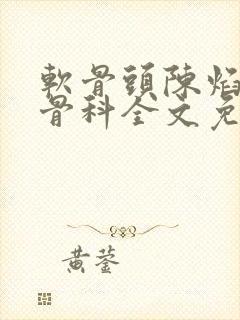 軟骨頭陳焰
骨科全文免
黄蓥